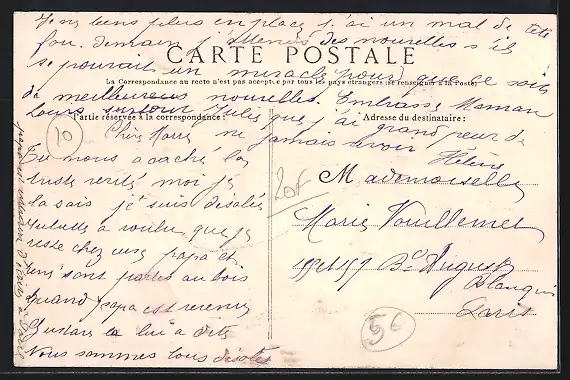 Je ne tiens plus en place j'ai un mal de tête
fou. demain j'attends des nouelles s'il
se pourait un miracle pour que ce soit
de meilleures nouvelles. Embrasse Maman
Jules que j'ai grand peur de
ne jamais revoir
Hélène
CARTE POSTALE
La Correspondance au recto n'est pas acceptée par tous les pays étrangers (se renseigner à la Poste)
Partie réservée à la correspondance:
Adresse du destinataire:
10
Chère Marie
Tu nous a caché la
triste verité moi je
la sais je suis desolée
a voulu que je
reste chez eux papa et
sont partis au bois
Quand papa est revenu
Gustave le lui a dit
Nous sommes tous désolés
20F
Mademoiselle
Marie Vouillemet
159 Bd Auguste
Blanqui
Paris
56